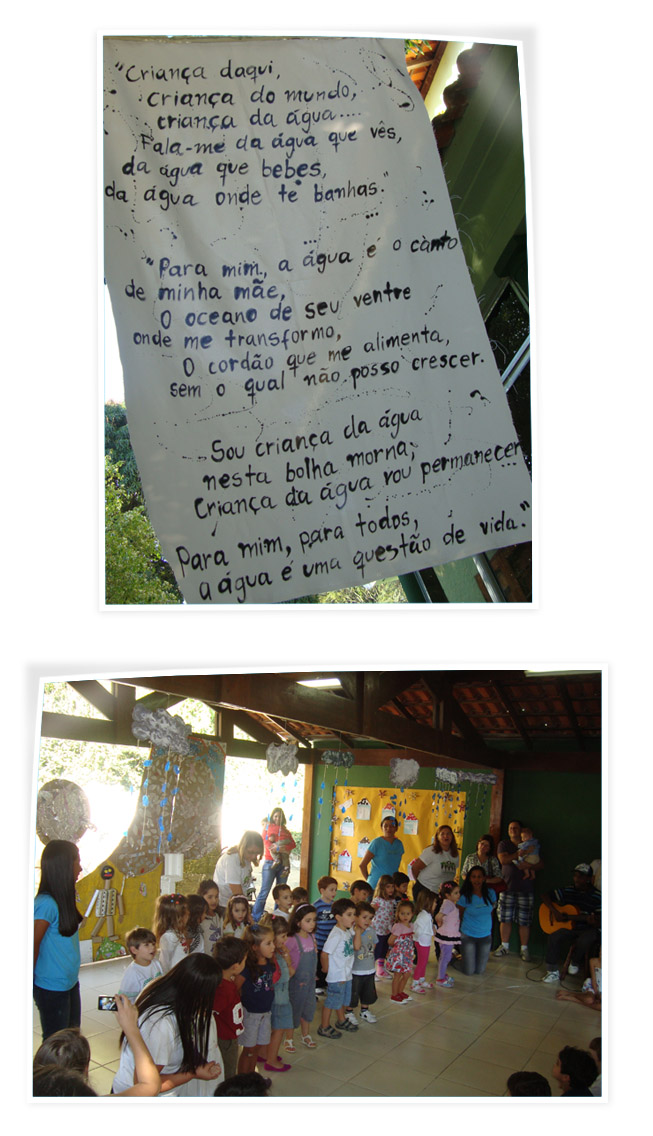 "Criança daqui,
criança do mundo,
criança da água....
Fala-me da água que vês,
da água que bebes,
da água onde te banhas."
"Para mim, a água é o canto
de minha mãe,
O oceano de seu ventre
onde me transformo,
O cordão que me alimenta,
sem o qual não posso crescer.
Sou criança da água
nesta bolha morna;
Criança da água vou permanecer...
Para mim, para todos,
a água é uma questão de vida."